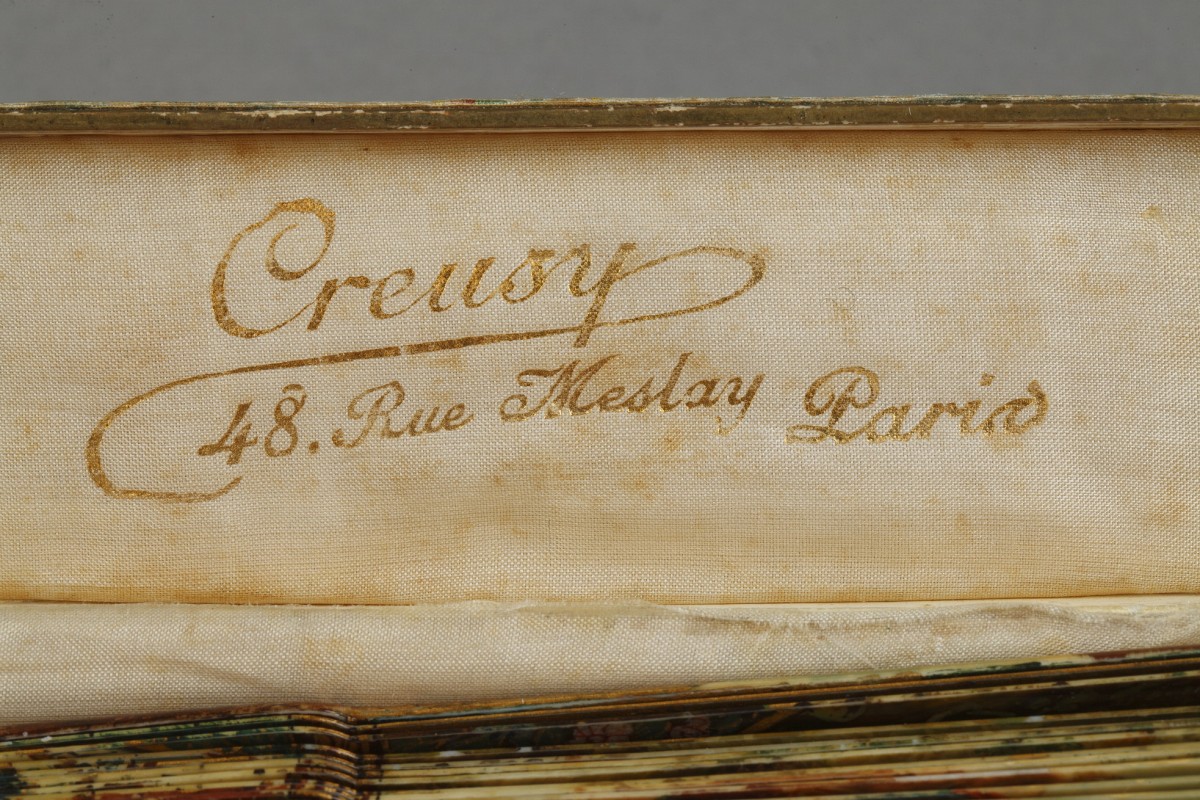 Creusy
48. Rue Meslay Paris